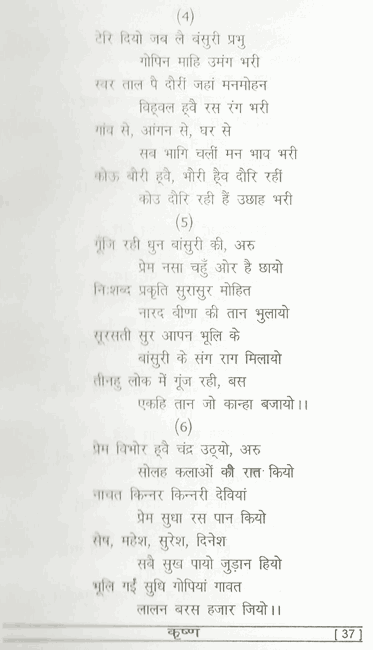 (4)
टेरि दियो जब लै बंसुरी प्रभु
गोपिन माहि उमंग भरी
स्वर ताल पै दौरीं जहां मनमोहन
विह्वल ह्वै रस रंग भरी
गांव से, आंगन से, घर से
सब भागि चलीं मन भाव भरी
कोऊ बौरी ह्वै, भौरी ह्वै दौरि रहीं
कोउ दौरि रही हैं उछाह भरी
(5)
गूँजि रही धुन बांसुरी की, अरु
प्रेम नसा चहुँ ओर है छायो
निःशब्द प्रकृति सुरासुर मोहित
नारद वीणा की तान भुलायो
सूरसती सुर आपन भूलि के
बांसुरी के संग राग मिलायो
तीनहु लोक में गूंज रही, बस
एकहि तान जो कान्हा बजायो।।
(6)
प्रेम विभोर ह्वै चंद्र उठ्यो, अरु
सोलह कलाओं की रात कियो
नाचत किन्नर किन्नरी देवियां
प्रेम सुधा रस पान कियो
सेष, महेश, सुरेश, दिनेश
सबै सुख पायो जुड़ान हियो
भूलि गईं सुधि गोपियां गावत
लालन बरस हजार जियो।।
कृष्ण [ 37 ]